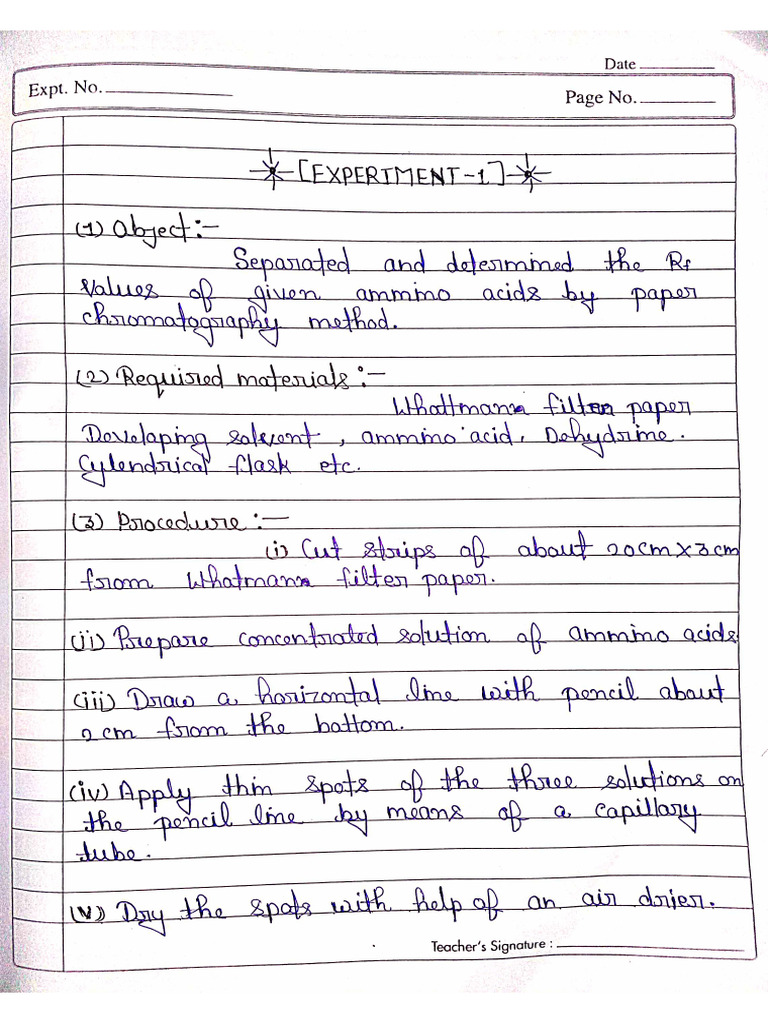 Date
Expt. No.
Page No.
[EXPERIMENT-1]
(1) Object:-
Separated and determined the Rf
values of given ammino acids by paper
chromatography method.
(2) Required materials:-
Whattmann filter paper
Developing solvent, ammino acid, Dehydrine.
Cylendrical flask etc.
(3) Procedure:-
(i) Cut strips of about 20cm x 3cm
from Whatmann filter paper.
(ii) Prepare concentrated solution of ammino acids
(iii) Draw a horizontal line with pencil about
2cm from the bottom.
(iv) Apply thin spots of the three solutions on
the pencil line by means of a capillary
tube.
(v) Dry the spots with help of an air drier.
Teacher's Signature :